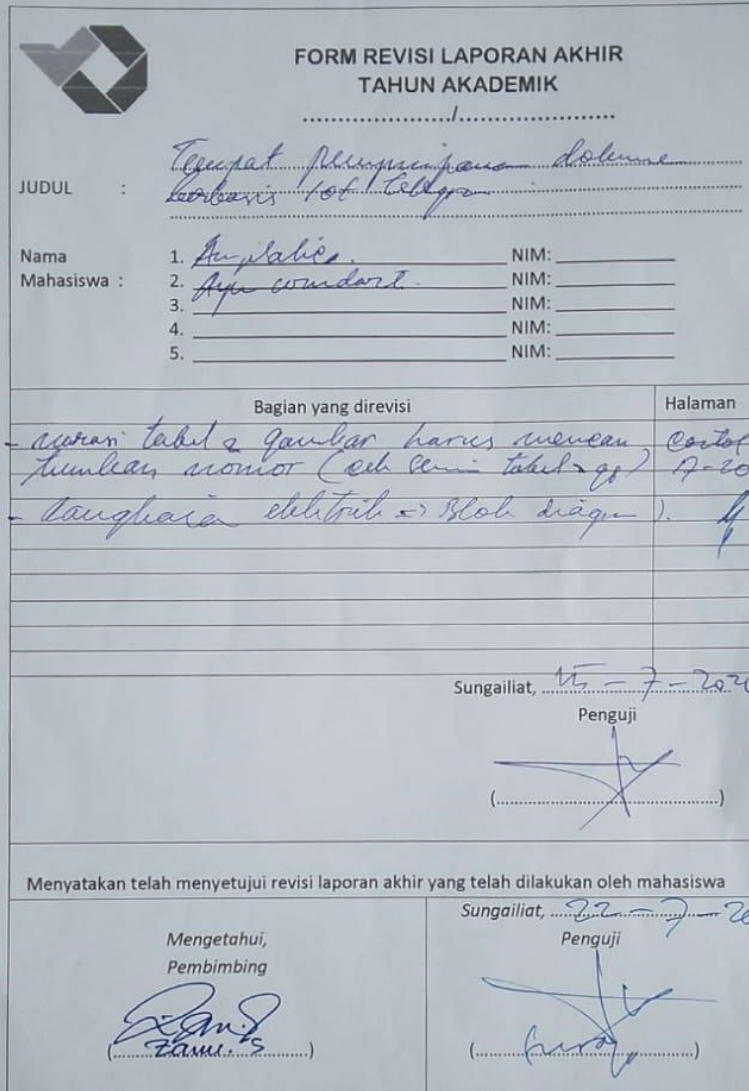 FORM REVISI LAPORAN AKHIR
TAHUN AKADEMIK
...................../......................
JUDUL : Tempat penyimpanan dokume
berbasis Iot Telegram
Nama
Mahasiswa :
1. NIM:
2. Ayu NIM:
3. NIM:
4. NIM:
5. NIM:
Bagian yang direvisi Halaman
- narasi tabel & gambar harus mencan Contoh
tumkan nomor (cek semua tabel & gb) 17-20
- Rangkaian elektrik => Blok diagram).
Sungailiat, 15 - 7 - 202
Penguji
(...............................................)
Menyatakan telah menyetujui revisi laporan akhir yang telah dilakukan oleh mahasiswa
Mengetahui,
Pembimbing
(Zanu. S)
Sungailiat, 22 - 7 - 20
Penguji
(...............................................)